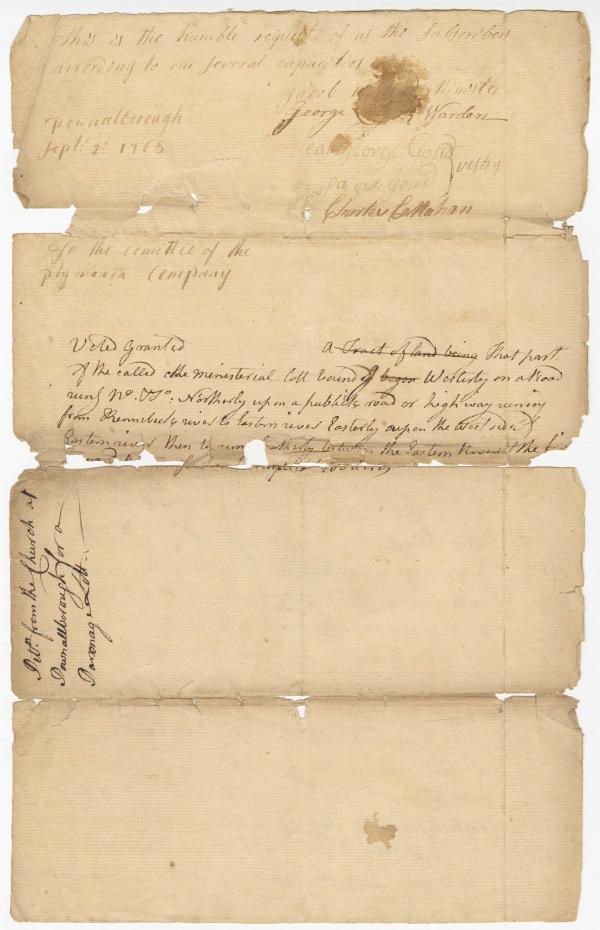 This is the humble request of us the Subscribers
according to our several capacities
Jacob Minister
George Warden
Pownalborough
Sept.r 2d 1765
George Goud
vestry
Jaque Goud
Charles Callahan
To the comittee of the
Plymouth Company
Voted Granted A Tract of land being That part
of the called the ministerial lott bound began Westerly on a Road
runs No. Northerly upon a publick road or high way runing
from Kennebeck river to Eastern river Easterly upon the West side
Eastern river then to run between the Eastern River & the
Pet.n from the Church at
Pownallborough for a
Parsonage Lott